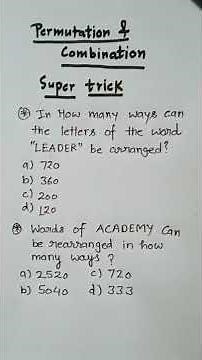 Permutation &
Combination
Super trick
* In How many ways can
the letters of the word
"LEADER" be arranged?
a) 720
b) 360
c) 200
d) 120
* Words of ACADEMY Can
be rearranged in how
many ways ?
a) 2520 c) 720
b) 5040 d) 333